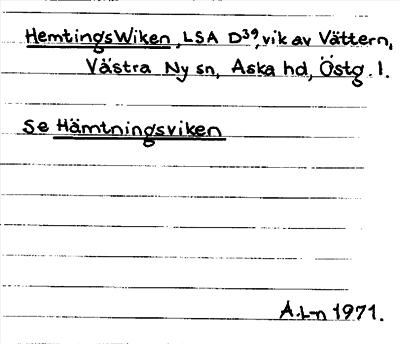 HemtingsWiken, LSA D³⁹, vik av Vättern,
Västra Ny sn, Aska hd, Östg. l.
Se Hämtningsviken
A.L-n 1971.